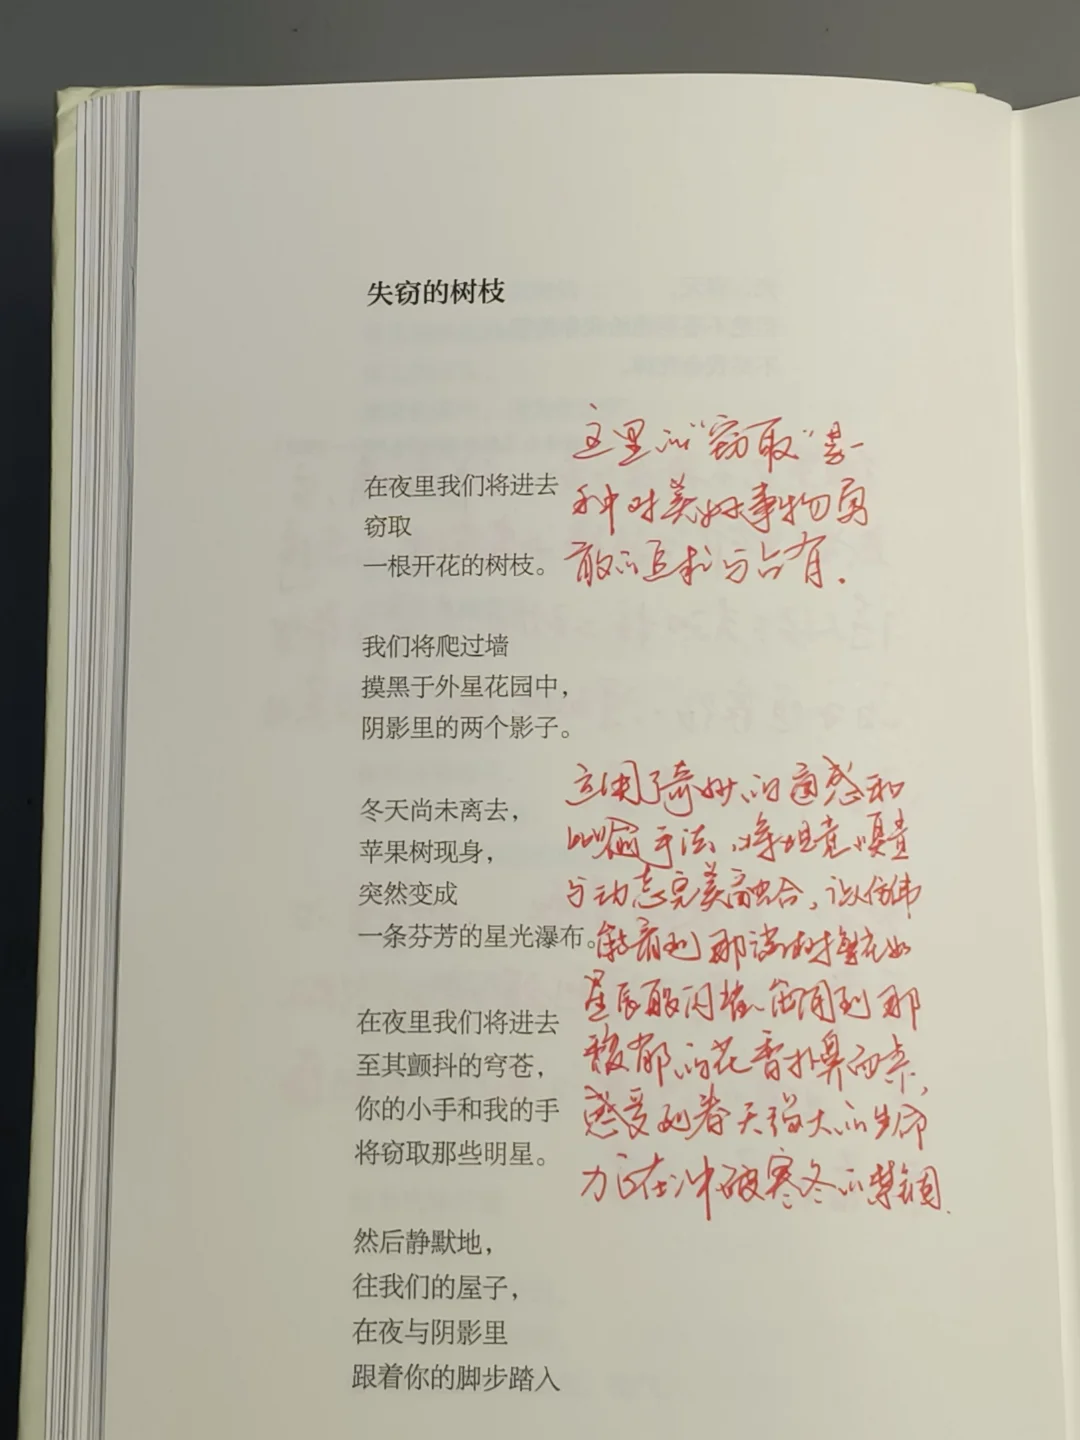 失窃的树枝
这里的“窃取”是一
种对美好事物勇
敢的追求与占有.
在夜里我们将进去
窃取
一根开花的树枝。
我们将爬过墙
摸黑于外星花园中，
阴影里的两个影子。
冬天尚未离去，
苹果树现身，
突然变成
一条芬芳的星光瀑布。
在夜里我们将进去
至其颤抖的穹苍，
你的小手和我的手
将窃取那些明星。
然后静默地，
往我们的屋子，
在夜与阴影里
跟着你的脚步踏入
运用了奇妙的通感和
比喻手法,将视觉嗅觉
与动态完美融合,让我们
能看到那满树繁花如
星辰般闪耀,能闻到那
馥郁的花香扑鼻而来,
感受到春天强大的生命
力正在冲破寒冬的禁锢.